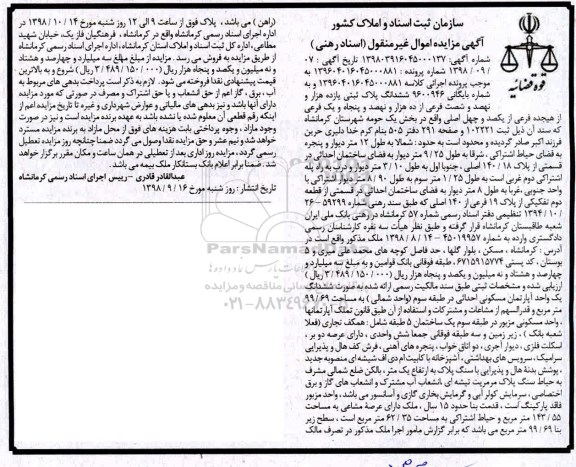 سازمان ثبت اسناد و املاک کشور
آگهی مزایده اموال غیرمنقول (اسناد رهنی)
قوه قضائیه
شماره آگهی: ۱۳۹۸۰۳۹۱۶۰۴۵۰۰۰۱۳۷ تاریخ آگهی: ۰۷
/ ۰۹ / ۱۳۹۸ شماره پرونده: ۱۳۹۶۰۴۰۱۶۰۴۵۰۰۰۸۸۱ به
موجب پرونده اجرائی کلاسه ۱۳۹۶۰۴۰۱۶۰۴۵۰۰۰۸۸۱ و به
شماره بایگانی ۹۶۰۰۹۴۶ ششدانگ پلاک ثبتی یازده هزار و
نهصد و شصت فرعی از ده هزار و نهصد و پنجاه و یک فرعی
از هیجده فرعی از یکصد و چهل اصلی واقع در بخش یک حومه شهرستان کرمانشاه
که سند آن ذیل ثبت ۱۰۲۲۲۱ و صفحه ۲۹۱ دفتر ۵۰۵ بنام کرم خدا دلیری حرین
فرزند اکبر صادر گردیده و محدود است به حدود: شمالا به طول ۱۲ متر دیوار و پنجره
به فضای حیاط اشتراکی، شرقا به طول ۹/۲۵ متر دیوار به فضای ساختمان احداثی در
قسمتی از پلاک ۱۸ / ۱۴۰ اصلی، جنوبا اول به طول ۳/۱۰ متر دیوار و درب به پله
اشتراکی دوم غربی است به طول ۱/۲۵ متر سوم به طول ۸/۹۰ متر دیوار اشتراکی با
واحد جنوبی، غربا به طول ۸ متر دیوار به فضای ساختمان احداثی در قسمتی از قطعه
دوم تفکیکی از پلاک ۱۹ فرعی از ۱۴۰ اصلی که طبق سند رهنی شماره ۵۹۲۹۹ - ۲۶
/ ۱۰ / ۱۳۹۴ تنظیمی دفتر اسناد رسمی شماره ۵۷ کرمانشاه در رهن بانک ملی ایران
شعبه طاقبستان کرمانشاه قرار گرفته و طبق نظر هیأت سه نفره کارشناسان رسمی
دادگستری وارده به شماره ۴۵۰۱۹۹۵۷ - ۱۴ / ۸ / ۱۳۹۸ ملک مذکور واقع است در
آدرس: کرمانشاه، مسکن، بلوار گلها، حد فاصل کوچه های محمد علی میری و ۵
بوستان، کد پستی ۶۷۱۵۹۱۵۷۷۴، طبقه فوقانی بانک قوامین و به مبلغ سه میلیارد و
چهارصد و هشتاد و نه میلیون و یکصد و پنجاه هزار ریال (۳/۴۸۹/۱۵۰/۰۰۰ ریال)
ارزیابی شده و مشخصات ثبتی طبق سند مالکیت رسمی ارائه شده به صورت ششدانگ
یک واحد آپارتمان مسکونی احداثی در طبقه سوم (واحد شمالی) به مساحت ۹۹/۶۹
متر مربع و قدرالسهم از مشاعات و مشترکات و استفاده از آن طبق قانون تملک آپارتمانها
، واحد مسکونی مزبور در طبقه سوم یک ساختمان ۵ طبقه شامل: همکف تجاری (فعلا
شعبه بانک)، زیر زمین و سه طبقه فوقانی جمعا شش واحدی، دارای عرصه دو بر،
اسکلت فلزی، دیوار آجری، دو اتاق خواب، پنجره های آهنی، فرش کف هال و پذیرایی
سرامیک، سرویس های بهداشتی، آشپزخانه با کابینت ام دی اف شیشه ای منصوبه جدید
، پوشش بدنه هال و پذیرایی با سنگ پلاک به ارتفاع یک متر، بالکن ضلع شمالی مشرف
به حیاط سنگ پلاک مرمریت تیشه ای، انشعاب آب مشترک و انشعاب های گاز و برق
اختصاصی، سرمایش کولر آبی و گرمایش بخاری گازی و آسانسور می باشد، واحد مزبور
فاقد پارکینگ است، قدمت بنا حدود ۱۵ سال، ملک دارای عرصه مشاعی به مساحت
۱۴۳/۵۵ متر مربع و حیاط اشتراکی به مساحت ۶۲/۳۵ متر مربع است، سطح زیر
بنا ۹۹/۶۹ متر مربع می باشد که برابر گزارش مامور اجرا ملک مذکور در تصرف مالک
(راهن) می باشد، پلاک فوق از ساعت ۹ الی ۱۲ روز شنبه مورخ ۱۴ / ۱۰ / ۱۳۹۸ در
اداره اجرای اسناد رسمی کرمانشاه واقع در کرمانشاه، فرهنگیان فاز یک، خیابان شهید
مطاعی، اداره کل ثبت اسناد و املاک استان کرمانشاه، اداره اجرای اسناد رسمی کرمانشاه
از طریق مزایده به فروش می رسد. مزایده از مبلغ سه میلیارد و چهارصد و هشتاد
و نه میلیون و یکصد و پنجاه هزار ریال (۳/۴۸۹/۱۵۰/۰۰۰ ریال) شروع و به بالاترین
قیمت پیشنهادی نقدا فروخته می شود. لازم به ذکر است پرداخت بدهی های مربوط به
آب، برق، گاز اعم از حق انشعاب و یا حق اشتراک و مصرف در صورتی که مورد مزایده
دارای آنها باشد و نیز بدهی های مالیاتی و عوارض شهرداری و غیره تا تاریخ مزایده اعم از
اینکه رقم قطعی آن معلوم شده یا نشده باشد به عهده برنده مزایده است و نیز در صورت
وجود مازاد، وجوه پرداختی بابت هزینه های فوق از محل مازاد به برنده مزایده مسترد
خواهد شد و نیم عشر و حق مزایده نقدا وصول می گردد ضمنا چنانچه روز مزایده تعطیل
رسمی گردد، مزایده روز اداری بعد از تعطیلی در همان ساعت و مکان مقرر برگزار خواهد
شد. ضمنا برابر اعلام بانک بستانکار ملک بیمه می باشد.
عبدالقادر قادری - رییس اجرای اسناد رسمی کرمانشاه
تاریخ انتشار: روز شنبه مورخ ۱۶ / ۹ / ۱۳۹۸
ParsNamadData
۰۲۱-۸۸۳۴۹۶۷۰